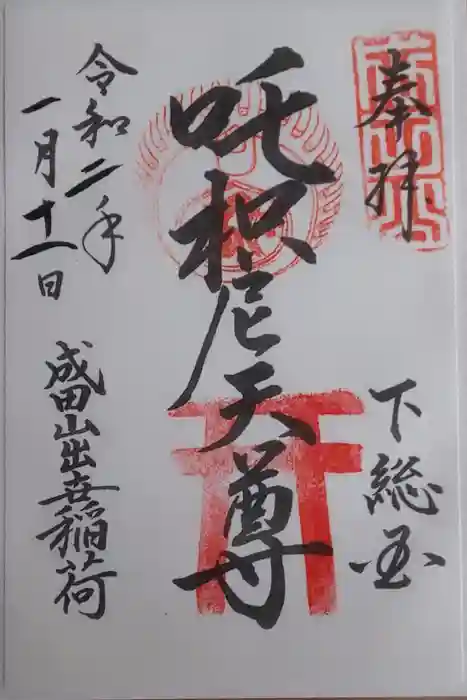 奉拝
下総国
吒枳尼天尊
令和二年
一月十一日
成田山出世稲荷